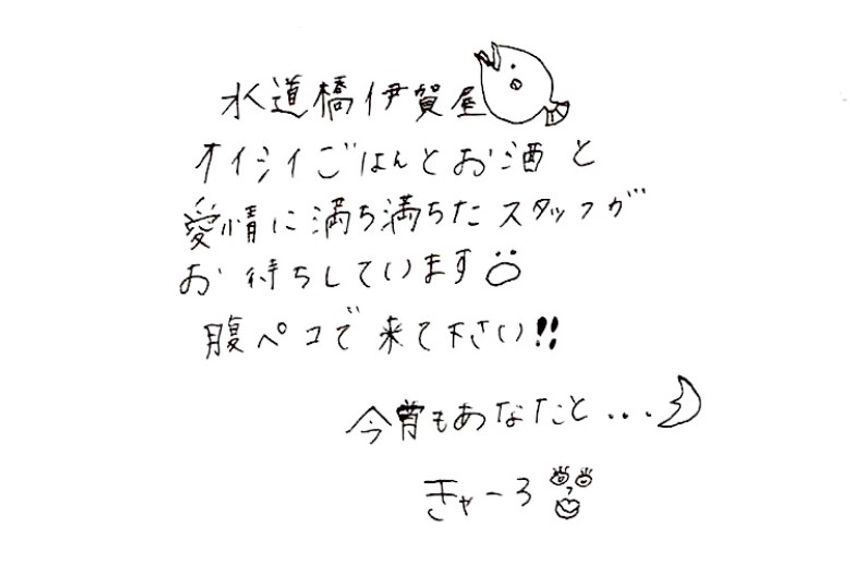 水道橋伊賀屋
オイシイごはんとお酒と
愛情に満ち満ちたスタッフが
お待ちしています
腹ペコで来て下さい!!
今宵もあなたと...
きゃーろ